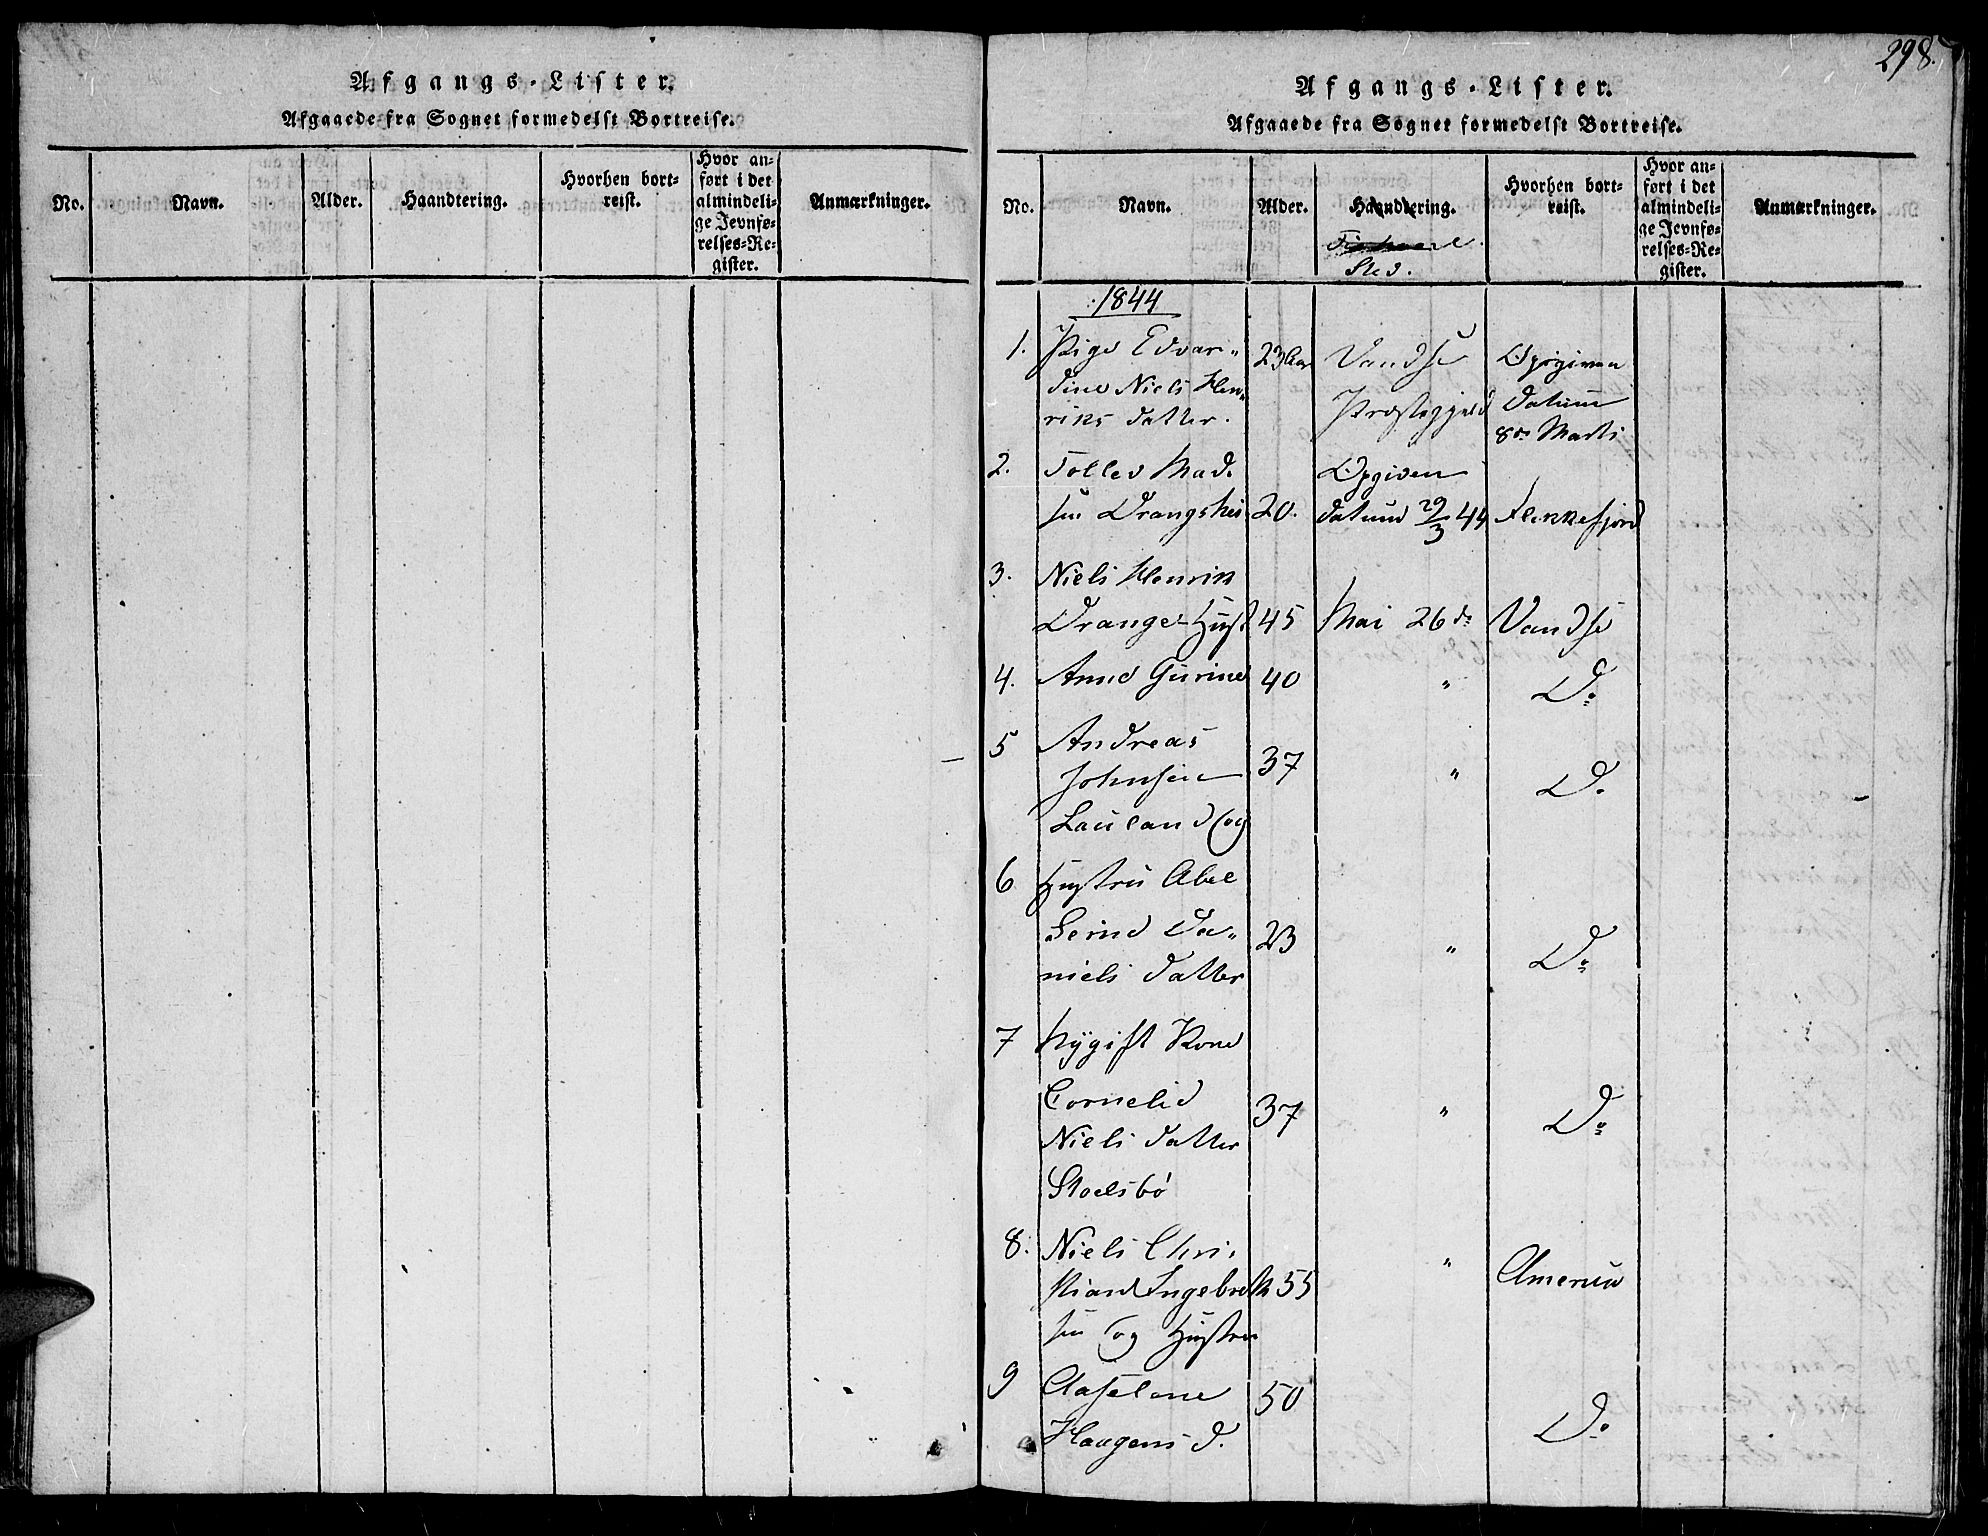 Afgangs-Lister.
Afgaaede fra Sognet formedelst Bortreise.
No.
Navn.
Alder.
Haandtering.
Hvorhen bort-
reist.
Hvor an-
ført i det
almindeli-
ge Jevnfø-
relses-Re-
gister.
Anmærkninger.
298.
Afgangs-Lister.
Afgaaede fra Sognet formedelst Bortreise.
No.
Navn.
Alder.
Haandtering.
Sted.
Hvorhen bort-
reist.
Hvor an-
ført i det
almindeli-
ge Jevnfø-
relses-Re-
gister.
Anmærkninger.
1844
1. Pige Edvar- 23 Aar Vandse Opgiven
dine Niels Hen- Præstegjeld datum
riks datter. 8de Marts
2. Tollev Mad- Opgiven
sen Drangshei 20. datum 29/3 44 Flekkefjord
3. Niels Henrik
Drange Hust 45 Mai 26de Vandse
4. Anne Gurine 40 " Do
5 Andreas
Johnsen 37 " Do
Lauland og
6 Hustru Abel
Serine Da- 23 " Do
niels datter
7 Nygift Kone
Cornelia 37 " Do
Niels datter
Stoelsbø
8. Niels Chri-
stian Ingebret 55 " America
sen og Hustru
9 Aaselene 50
Haagens d. Do